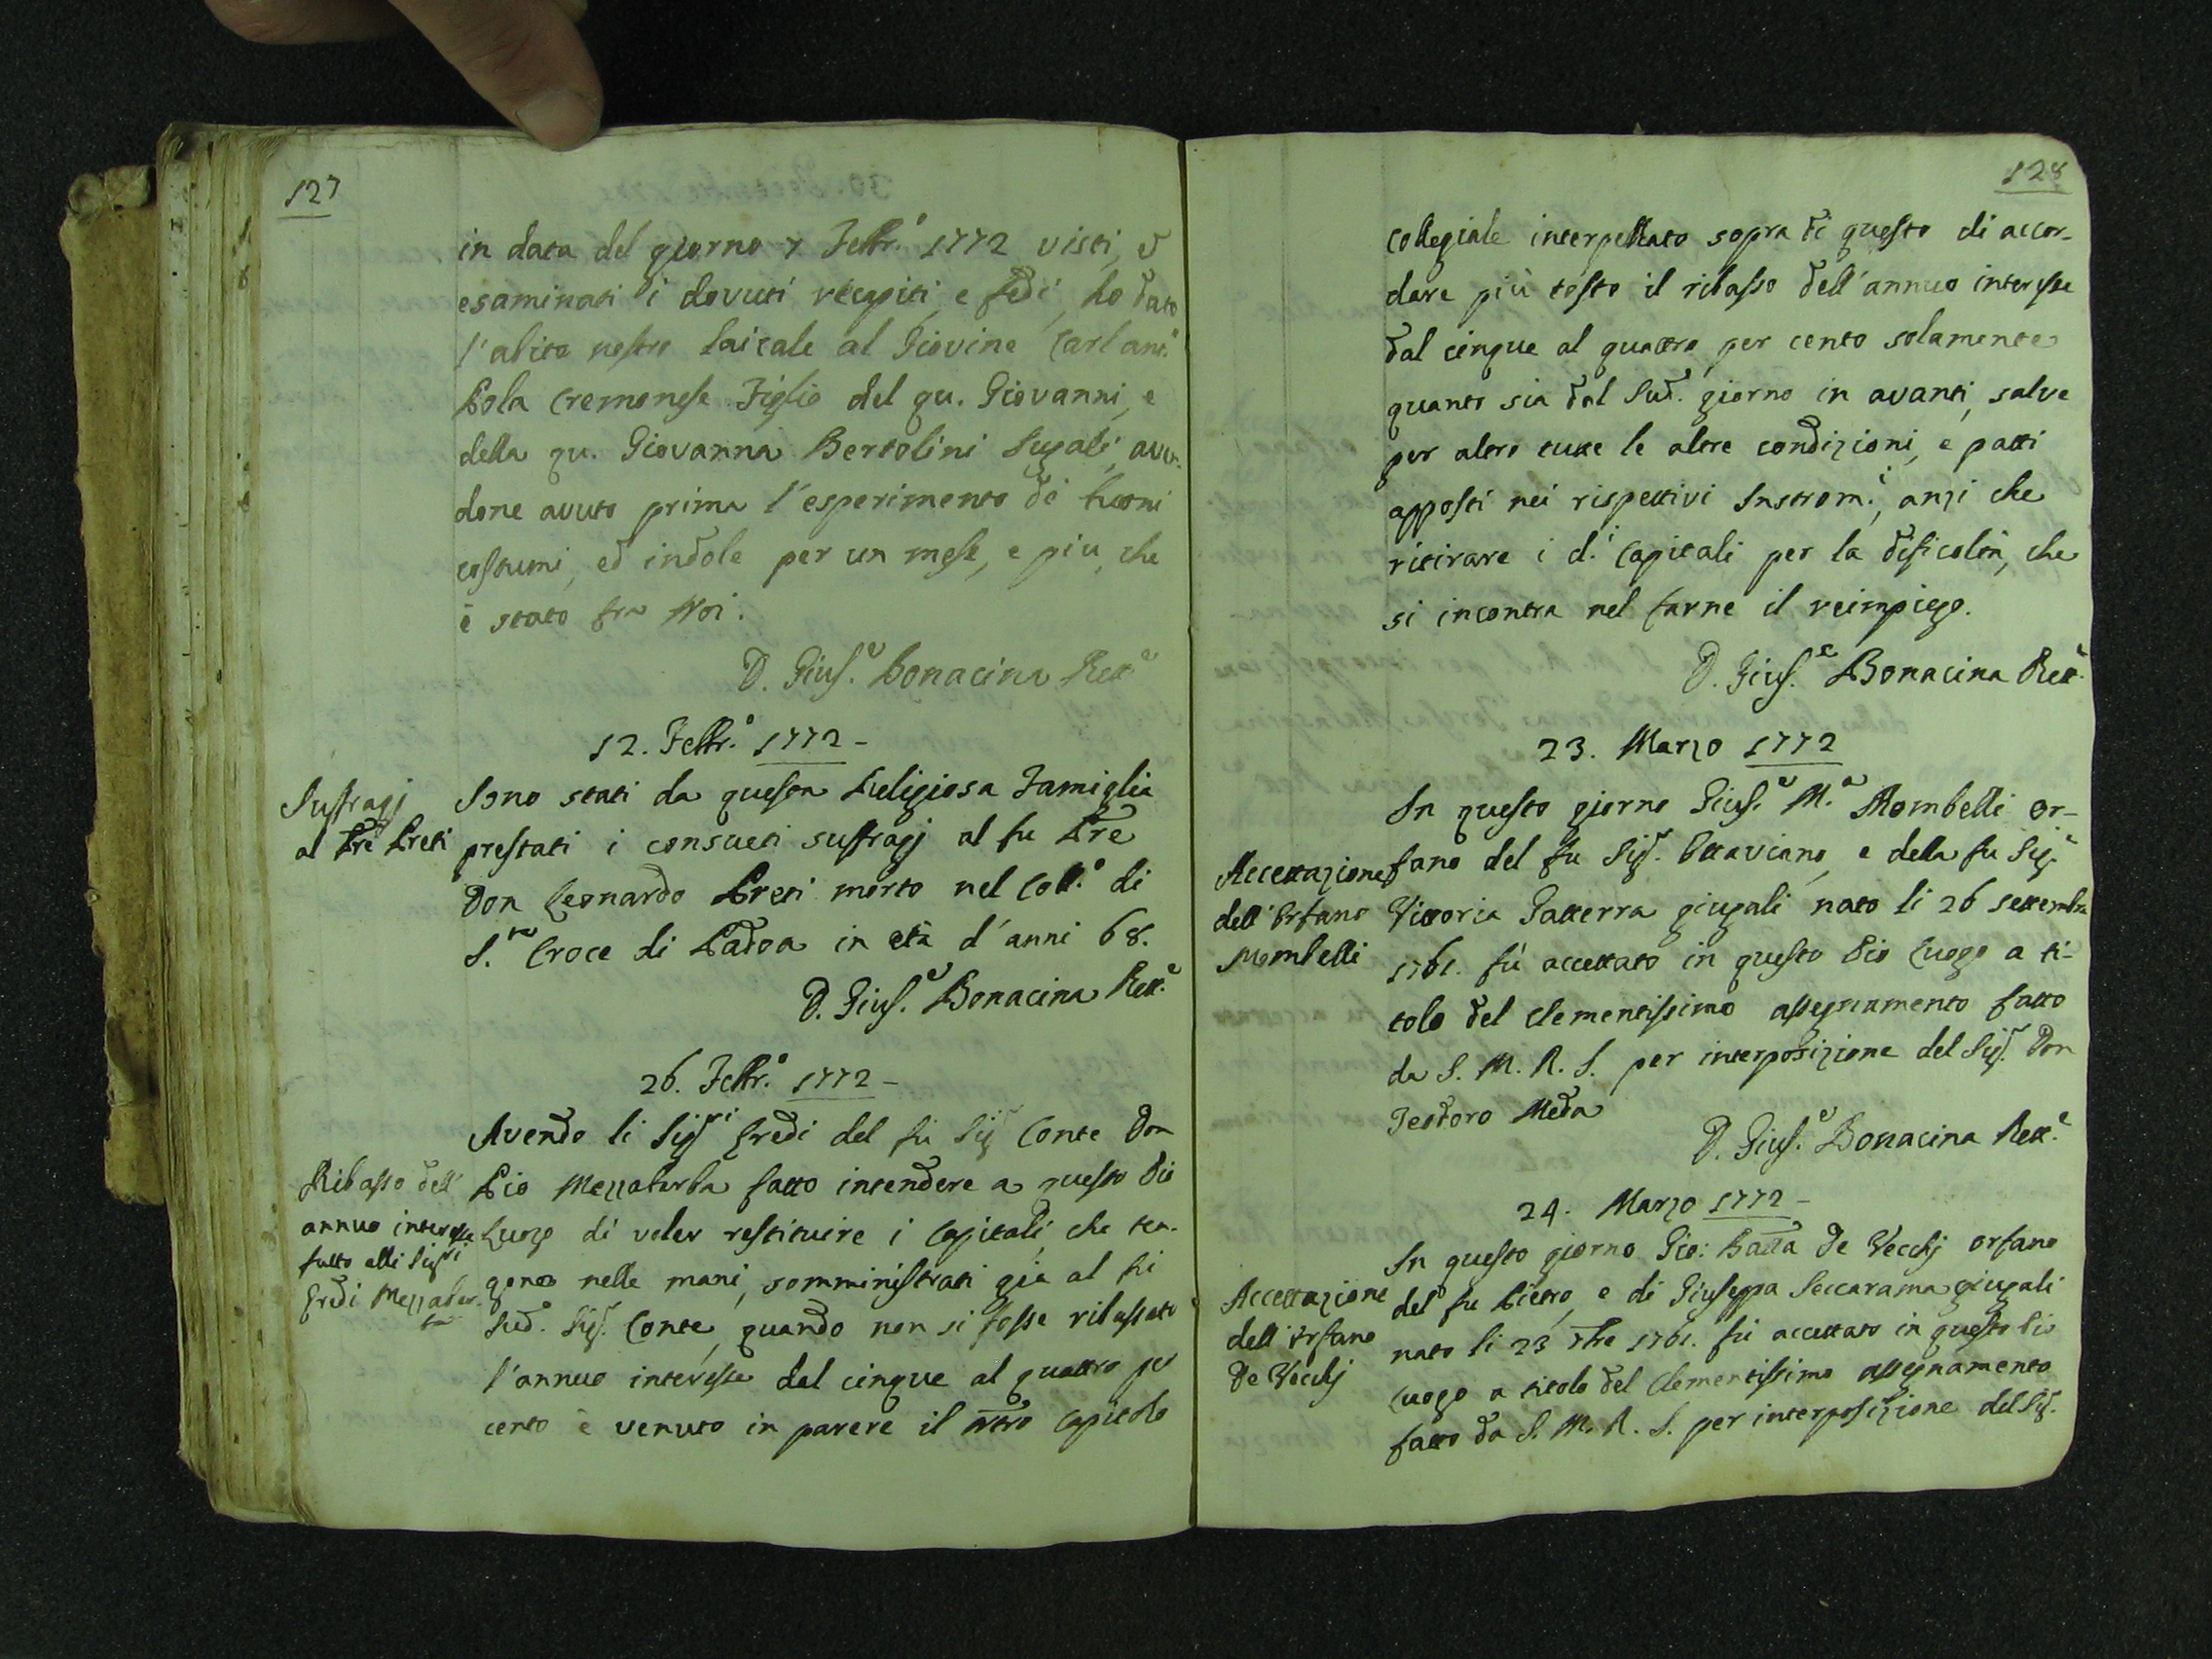 127
in data del giorno 7 Febbr.º 1772 visti, ed
esaminati i dovuti recapiti, e fedi, ho dato
l'abito nostro Laicale al Giovine Carl'ant.º
Pola Cremonese Figlio del qu. Giovanni, e
della qu. Giovanna Bertolini Jugali, aven-
done avuto prima l'esperimento di buoni
costumi, ed indole per un mese, e piu, che
è stato fra Noi.
D. Gius.e Bonacina Rett.e
12. Febbr.º 1772 -
Suffragj
al Pre Preti
Sono stati da questa Religiosa Famiglia
prestati i consueti suffragj al fu Pre
Don Leonardo Preti morto nel Coll.º di
S.ta Croce di Padoa in età d'anni 68.
D. Gius.e Bonacina Rett.e
26. Febbr.º 1772 -
Ribasso dell'
annuo interesse
fatto alli Sigri
Eredi Mezzabar-
ba
Avendo li Sigri Eredi del fu Sigr Conte Don
Pio Mezzabarba fatto intendere a questo Pio
Luogo di voler restituire i Capitali, che ten-
gono nelle mani, somministrati già al fu
Sud.º Sigr. Conte, quando non si fosse ribassato
l'annuo interesse dal cinque al quattro per
cento è venuto in parere il ntro Capitolo
128
Collegiale interpellato sopra di questo di accor-
dare più tosto il ribasso dell'annuo interesse
dal cinque al quattro per cento solamente
quanto sia dal Sud. giorno in avanti, salve
per altro tutte le altre condizioni, e patti
apposti nei rispettivi Instrom.i, anzi che
ritirare i d.i Capitali per la dificoltà, che
si incontra nel farne il reimpiego.
D. Gius.e Bonacina Rett.e
23. Marzo 1772
Accettazione
dell'Orfano
Mombelli
In questo giorno Gius.e M.a Mombelli or-
fano del fu Sigr. Ottaviano, e della fu Sig.a
Vittoria Gatterra giugali nato li 26 Settembre
1761. fù accettato in questo Pio Luogo a ti-
tolo del Clementissimo assegnamento fatto
da S. M. R. I. per interposizione del Sigr. Don
Teodoro Meda
D. Gius.e Bonacina Rett.e
24. Marzo 1772 -
Accettazione
dell'Orfano
De Vecchj
In questo giorno Gio: Batta De Vecchj orfano
del fu Pietro, e di Giuseppa Seccarama giugali
nato li 23 7bre 1761. fù accettato in questo Pio
Luogo a titolo del Clementissimo assegnamento
fatto da S. M. R. I. per interposizione del Sigr.